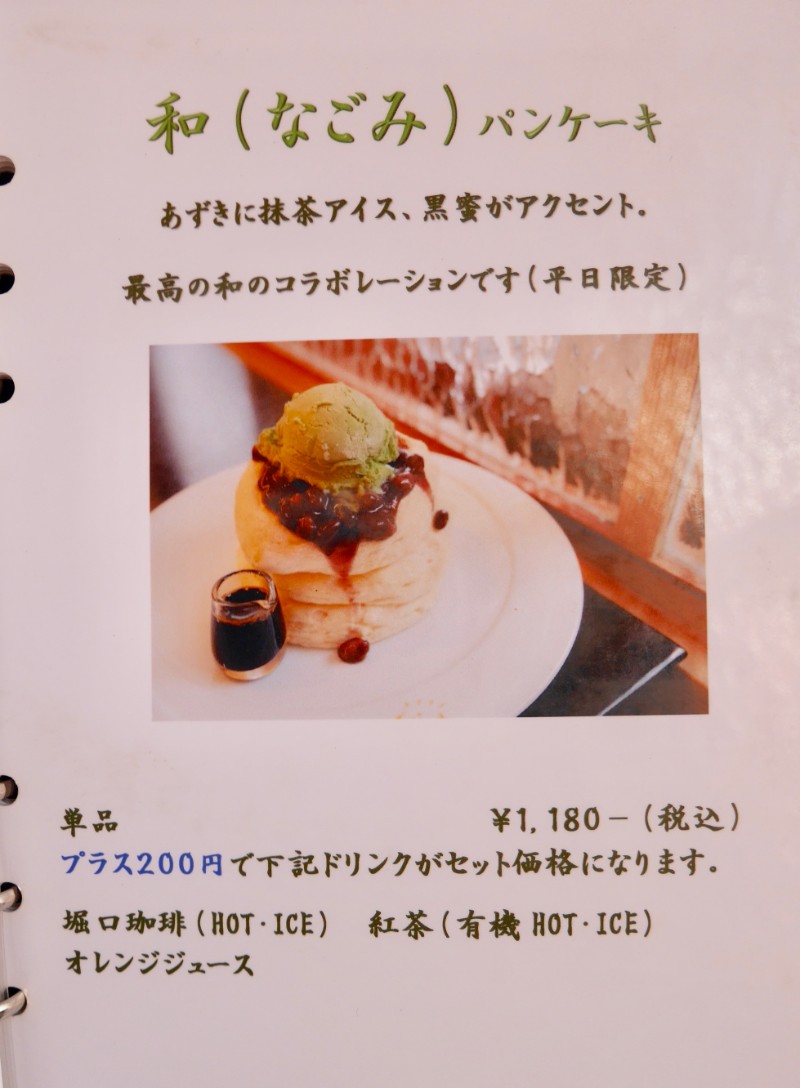 和(なごみ)パンケーキ
あずきに抹茶アイス、黒蜜がアクセント。
最高の和のコラボレーションです(平日限定)
単品 ¥1,180－(税込)
プラス200円で下記ドリンクがセット価格になります。
堀口珈琲(HOT・ICE) 紅茶(有機 HOT・ICE)
オレンジジュース